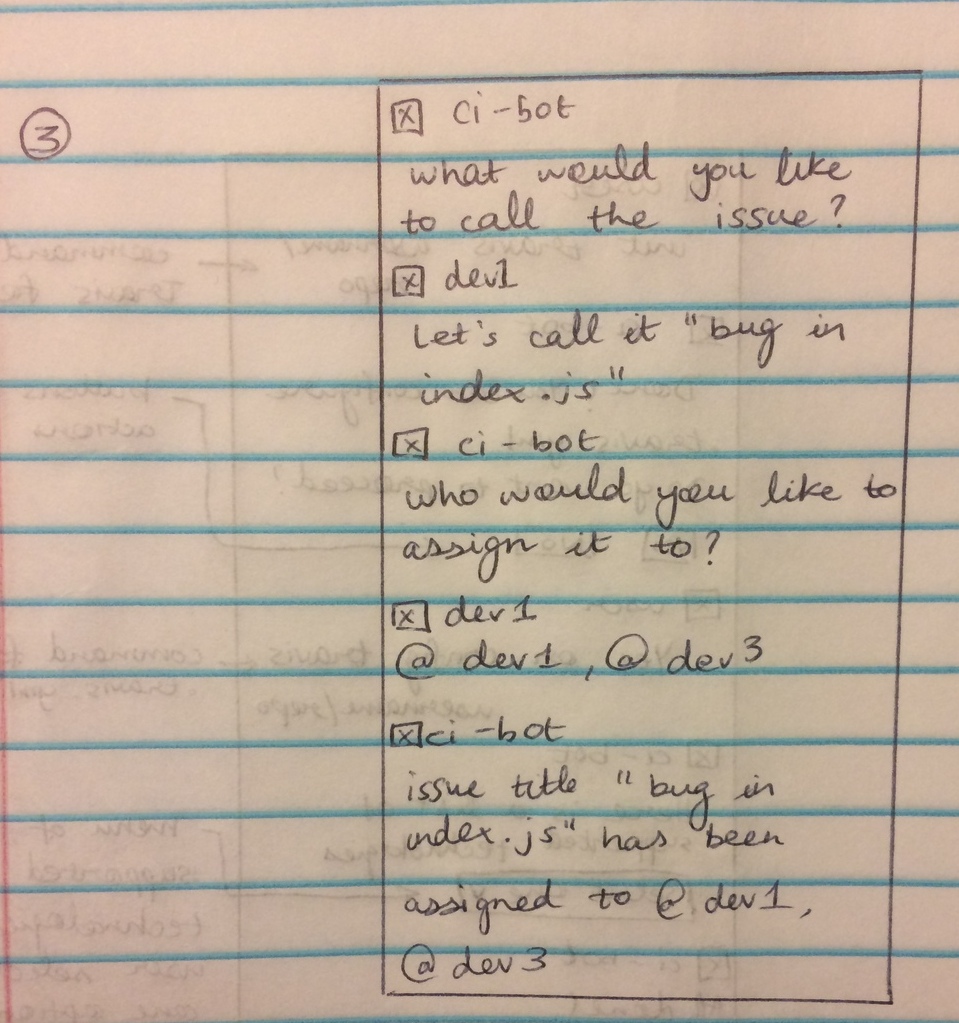 3
☒ ci-bot
what would you like
to call the issue?
☒ dev1
Let's call it "bug in
index.js"
☒ ci-bot
who would you like to
assign it to?
☒ dev1
@dev1, @dev3
☒ ci-bot
issue title "bug in
index.js" has been
assigned to @dev1,
@dev3